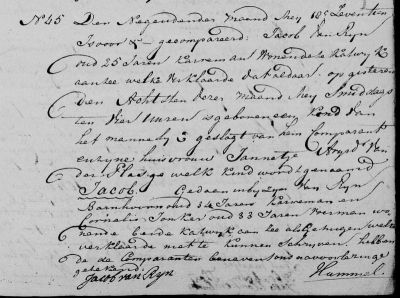 No 45 Den Negenden der maand Mey 18e Zeventien
is voor ge compareerd: Jacob van Ryn
oud 25 Jaren Karreman Wonende te Katwyk
aan zee welke Verklaarde dat aldaar op gisteren
Den Achtsten dezer maand Mey Smiddags
ten vier Uuren is geboren een Kind van
het mannelyke geslagt van hem Comparant
en zyne huisvrouw Jannetje Aryst Van
der Plas ge welk kind word genaamd
Jacob. Gedaan in byzyn Van Ryn
34 Jaren Karreman en
Cornelis Jonker oud 33 Jaren Veerman wo
nende beide Katwyk aan zee welke
verklaarde niet te kunnen Schryven hebben
de de Comparanten benevens ons na voorlezinge
getekend.
Jacob van Ryn Hummel